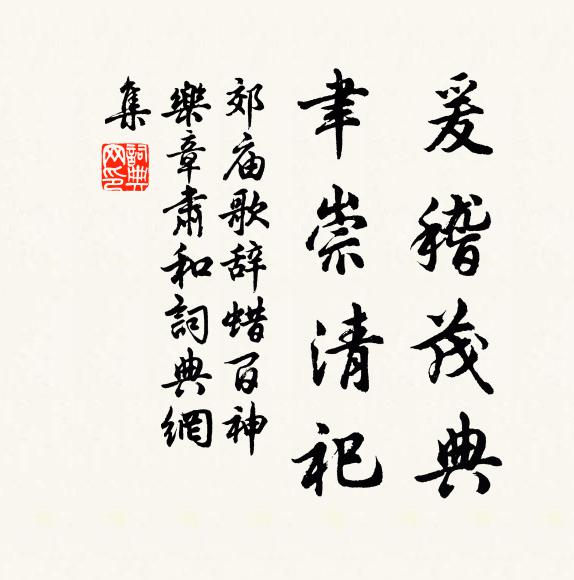 爰稽茂典
聿崇清祀
郊庙歌辞蜡百神
樂章肃和詞典網
集
詞典网印